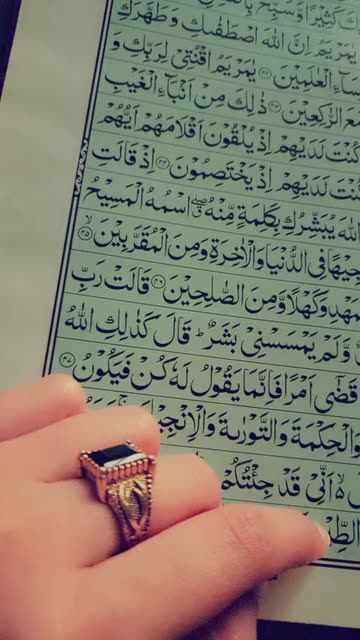 كَثِيْرًا وَّسَبِّحْ
يٰمَرْيَمُ اِنَّ اللّٰهَ اصْطَفٰىكِ وَطَهَّرَكِ
الْعٰلَمِيْنَ ﴿۴۲﴾ يٰمَرْيَمُ اقْنُتِيْ لِرَبِّكِ وَ
مَعَ الرّٰكِعِيْنَ ﴿۴۳﴾ ذٰلِكَ مِنْ اَنْۢبَآءِ الْغَيْبِ
كُنْتَ لَدَيْهِمْ اِذْ يُلْقُوْنَ اَقْلَامَهُمْ اَيُّهُمْ
كُنْتَ لَدَيْهِمْ اِذْ يَخْتَصِمُوْنَ ﴿۴۴﴾ اِذْ قَالَتِ
اللّٰهَ يُبَشِّرُكِ بِكَلِمَةٍ مِّنْهُ ۖ اسْمُهُ الْمَسِيْحُ
فِي الدُّنْيَا وَالْاٰخِرَةِ وَمِنَ الْمُقَرَّبِيْنَ ﴿۴۵﴾
وَكَهْلًا وَّمِنَ الصّٰلِحِيْنَ ﴿۴۶﴾ قَالَتْ رَبِّ
وَّلَمْ يَمْسَسْنِيْ بَشَرٌ ؕ قَالَ كَذٰلِكِ اللّٰهُ
قَضٰٓى اَمْرًا فَاِنَّمَا يَقُوْلُ لَهٗ كُنْ فَيَكُوْنُ ﴿۴۷﴾
وَالْحِكْمَةَ وَالتَّوْرٰىةَ وَالْاِنْجِيْلَ
اَنِّيْ قَدْ جِئْتُكُمْ